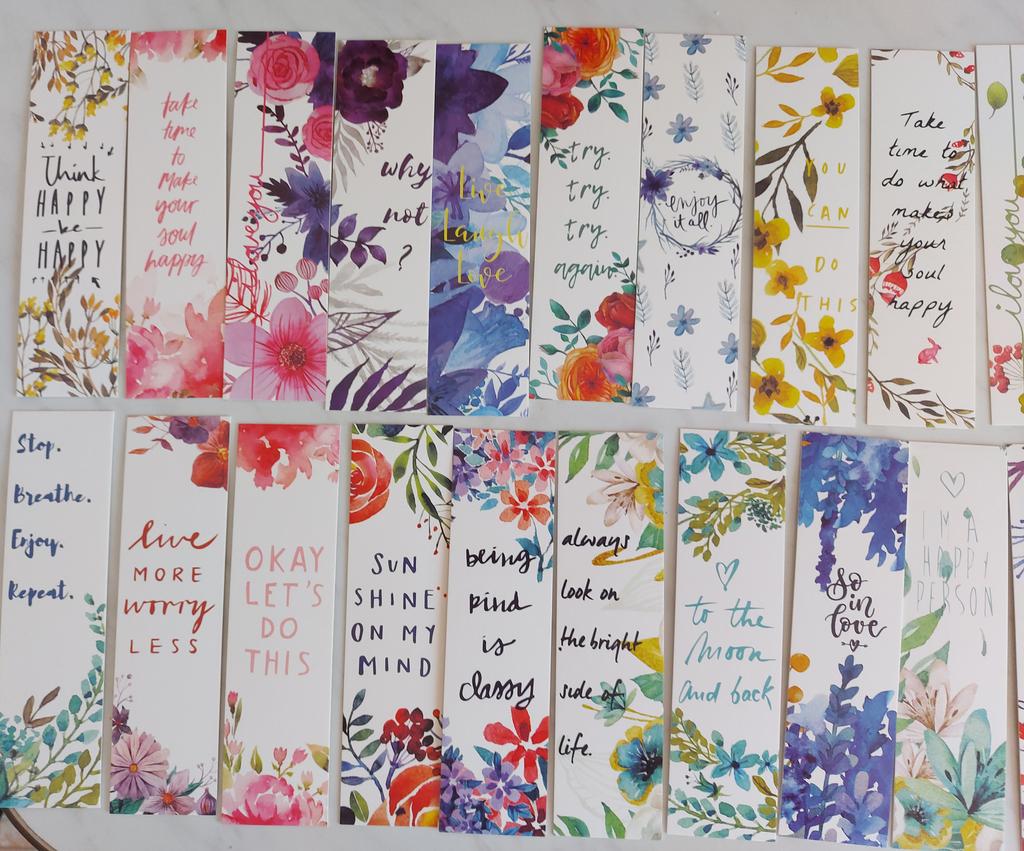 Think
HAPPY
be
HAPPY
take
time
to
Make
your
soul
happy
I love you
why
not
?
Live
Laugh
Love
try.
try.
try.
again.
enjoy
it all.
YOU
CAN
DO
THIS
Take
time to
do what
makes
your
soul
happy
i love you
Stop.
Breathe.
Enjoy.
Repeat.
live
MORE
worry
LESS
OKAY
LET'S
DO
THIS
SUN
SHINE
ON MY
MIND
being
kind
is
classy
always
look on
the bright
side of
life.
to the
Moon
and back
So
in
love
I'M A
HAPPY
PERSON